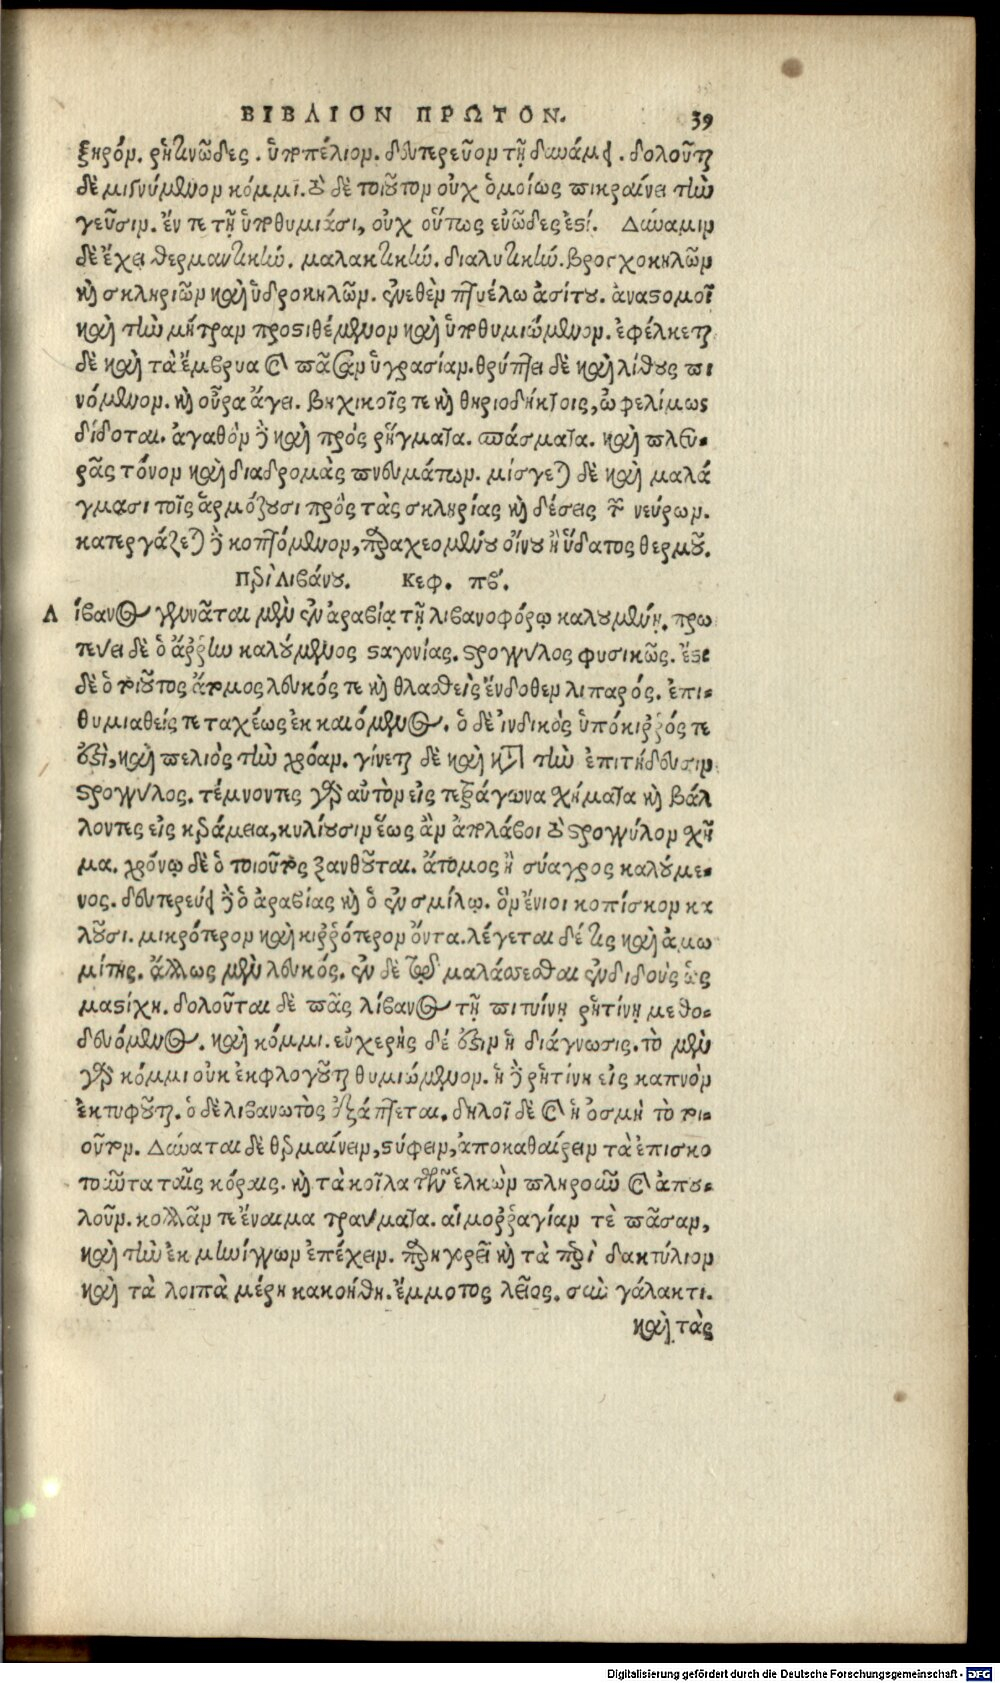 ΒΙΒΛΙΟΝ ΠΡΩΤΟΝ. 39
ξηρόν. ῥητινῶδες. ὑποπέλιον. δευτερεῦον τῇ δυνάμει. δολοῦται
δὲ μιγνύμενον κόμμι. τὸ δὲ τοιοῦτον οὐχ ὁμοίως πικραίνει τὴν
γεῦσιν. ἔν τε τῇ ὑποθυμιάσι, οὐχ οὕτως εὐῶδες ἐστί. Δύναμιν
δὲ ἔχει θερμαντικήν. μαλακτικήν. διαλυτικήν. βρογχοκηλῶν
καὶ σκληριῶν καὶ ὑδροκηλῶν. ἐνεθὲν πτυέλω ἀσίτου. ἀναστομοῖ
καὶ τὴν μήτραν προστιθέμενον καὶ ὑποθυμιώμενον. ἐφέλκεται
δὲ καὶ τὰ ἔμβρυα καὶ πᾶσαν ὑγρασίαν. θρύπτει δὲ καὶ λίθους πι
νόμενον. καὶ οὖρα ἄγει. βηχικοῖς τε καὶ θηριοδήκτοις, ὠφελίμως
δίδοται. ἀγαθὸν δὲ καὶ πρός ῥήγματα. σπάσματα. καὶ πλευ-
ρᾶς τόνον καὶ διαδρομὰς πνευμάτων. μίσγεται δὲ καὶ μαλά
γμασι τοῖς ἁρμόζουσι πρὸς τὰς σκληρίας καὶ δέσεις τῶν νεύρων.
κατεργάζεται δὲ κοπτόμενον, παραχεομένου οἴνου ἢ ὕδατος θερμοῦ.
Περὶ Λιβάνου. Κεφ. πβ΄.
Λ ίβανος γεννᾶται μὲν ἐν ἀραβίᾳ τῇ λιβανοφόρῳ καλουμένῃ. πρω
τεύει δὲ ὁ ἄῤῥην καλούμενος σταγονίας. στρογγύλος φυσικῶς. ἔστι
δὲ ὁ τοιοῦτος ἄτομος λευκός τε καὶ θλασθεὶς ἔνδοθεν λιπαρός. ἐπι-
θυμιαθείς τε ταχέως ἐκκαιόμενος. ὁ δὲ ἰνδικὸς ὑπόκιῤῥός τε
ἐστὶ, καὶ πελιὸς τὴν χρόαν. γίνεται δὲ καὶ κατὰ τὴν ἐπιτήδευσιν
στρογγύλος. τέμνοντες γὰρ αὐτὸν εἰς τετράγωνα χήματα καὶ βάλ
λοντες εἰς κεράμεια, κυλίουσιν ἕως ἂν ἀπολάβοι τὸ στρογγύλον χῆ
μα. χρόνῳ δὲ ὁ τοιοῦτος ξανθοῦται. ἄτομος ἢ σύαγρος καλούμε-
νος. δευτερεύει δὲ ὁ ἀραβίας καὶ ὁ ἐν σμίλῳ. ὃν ἔνιοι κοπίσκον κα
λοῦσι. μικρότερον καὶ κιῤῥότερον ὄντα. λέγεται δέ τις καὶ ἀμω
μίτης. ἄλλως μὲν λευκός. ἐν δὲ τῷ μαλάσσεσθαι ἐνδιδοὺς ὡς
μαστίχη. δολοῦται δὲ πᾶς λίβανος τῇ πιτυίνῃ ῥητίνῃ μεθο-
δευόμενος. καὶ κόμμι. εὐχερής δέ ἐστιν ἡ διάγνωσις. τὸ μὲν
γὰρ κόμμι οὐκ ἐκφλογοῦται θυμιώμενον. ἡ δὲ ῥητίνη εἰς καπνὸν
ἐκτυφοῦται. ὁ δὲ λιβανωτὸς ἐξάπτεται. δηλοῖ δὲ καὶ ἡ ὀσμὴ τὸ τοι-
οῦτον. Δύναται δὲ θερμαίνειν, στύφειν, ἀποκαθαίρειν τὰ ἐπισκο
τοῦντα ταῖς κόραις. καὶ τὰ κοῖλα τῶν ἑλκῶν πληροῦν καὶ ἀπου-
λοῦν. κολλᾶν τε ἔναιμα τραύματα. αἱμοῤῥαγίαν τὲ πᾶσαν,
καὶ τὴν ἐκ μηνίγγων ἐπέχειν. παρηγορεῖ καὶ τὰ περὶ δακτύλιον
καὶ τὰ λοιπὰ μέρη κακοήθη. ἔμμοτος λεῖος. σὺν γάλακτι.
καὶ τὰς
Digitalisierung gefördert durch die Deutsche Forschungsgemeinschaft - DFG